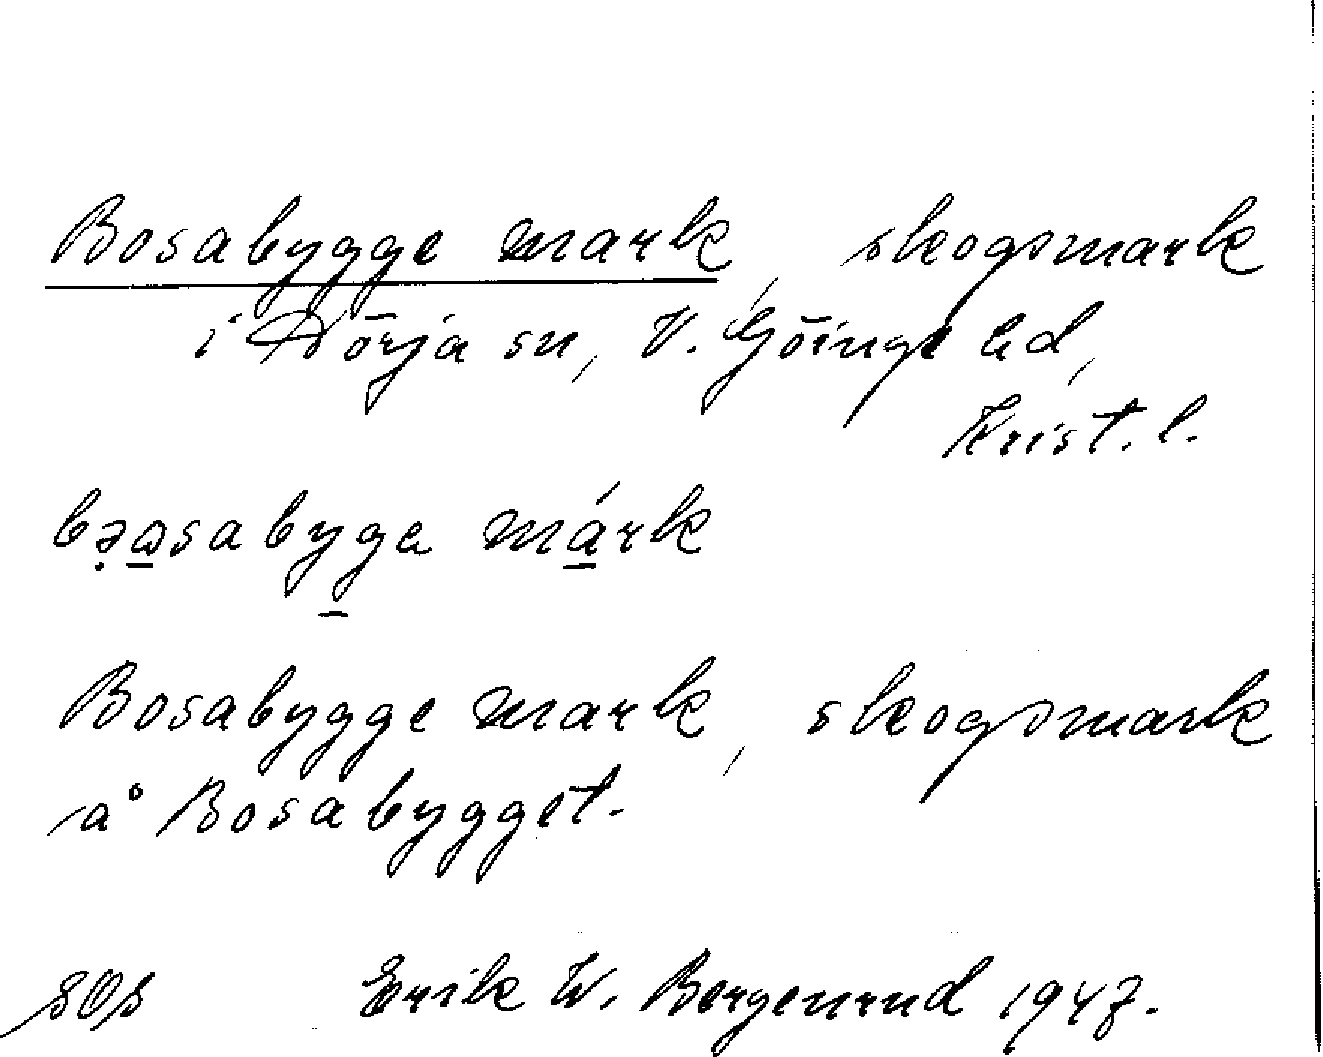 Bosabygge mark, skogsmark
i Nörja sn, V. Göinge hd,
Krist. l.
bə̣ω̲sabyg̲a má̲rk
Bosabygge mark, skogsmark
å Bosabygget.
sOs Erik W. Bergenrud 1947.